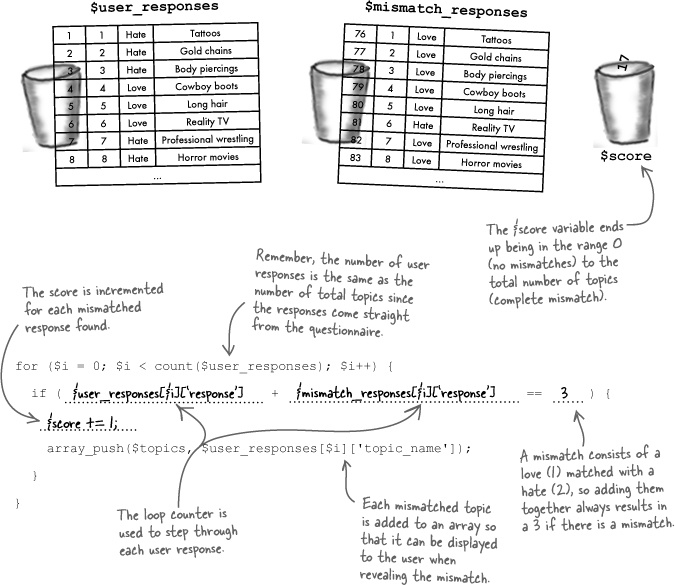 $user_responses
1 1 Hate Tattoos
2 2 Hate Gold chains
3 3 Hate Body piercings
4 4 Love Cowboy boots
5 5 Love Long hair
6 6 Love Reality TV
7 7 Hate Professional wrestling
8 8 Hate Horror movies
...
$mismatch_responses
76 1 Love Tattoos
77 2 Love Gold chains
78 3 Love Body piercings
79 4 Love Cowboy boots
80 5 Love Long hair
81 6 Hate Reality TV
82 7 Love Professional wrestling
83 8 Love Horror movies
...
17
$score
The $score variable ends
up being in the range 0
(no mismatches) to the
total number of topics
(complete mismatch).
Remember, the number of user
responses is the same as the
number of total topics since
the responses come straight
from the questionnaire.
The score is incremented
for each mismatched
response found.
for ($i = 0; $i < count($user_responses); $i++) {
if ( $user_responses[$i]['response'] + $mismatch_responses[$i]['response'] == 3 ) {
$score += 1;
array_push($topics, $user_responses[$i]['topic_name']);
}
}
A mismatch consists of a
love (1) matched with a
hate (2), so adding them
together always results in
a 3 if there is a mismatch.
The loop counter is
used to step through
each user response.
Each mismatched topic
is added to an array so
that it can be displayed
to the user when
revealing the mismatch.